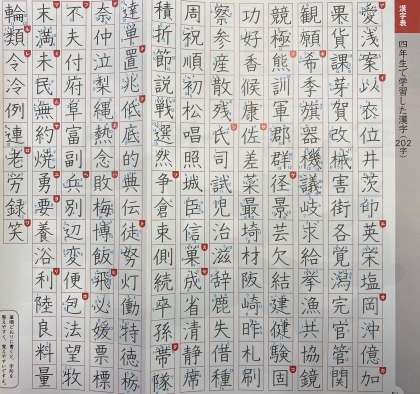 漢字表
四年生で学習した漢字（202字）
愛浅案以衣位井茨印英栄塩岡沖億加
果貨課芽賀改械害街各覚潟完官管関
観願希季旗器機議岐求給挙漁共協鏡
競極熊訓軍郡群径景芸欠結建健験固
功好香候康佐差菜最埼材阪崎昨札刷
察参産散残氏司試児治滋辞鹿失借種
周祝順初松唱照城臣信巣成省清静席
積折節説戦選然争倉束側続卒孫帯隊
達単置兆低底的典伝徒努灯働特徳栃
奈仲泣梨縄熱念敗梅博飯飛必媛票標
不夫付府阜富副兵別辺変便包法望牧
末満未民無約焼勇要養浴利陸良料量
輪類令冷例連老労録笑